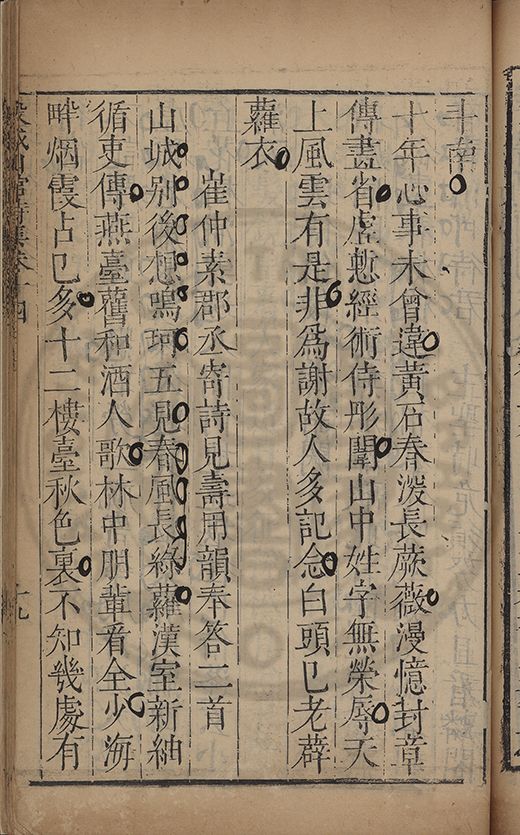 斗南
十年心事未曾違黃石春深長蕨薇漫憶封章
傳晝省虛慙經術侍彤闈山中姓字無榮辱天
上風雲有是非爲謝故人多記念白頭已老薜
蘿衣
崔仲素郡丞寄詩見壽用韻奉答二首
山城別後想鳴珂五見春風長綠蘿漢室新紬
循吏傳燕臺舊和酒人歌林中朋輩看全少海
畔烟霞占已多十二樓臺秋色裏不知幾處有
穀城山館詩集卷十四
十九